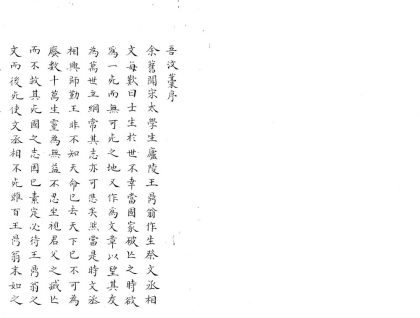 吾汶藁序
余舊聞宋太學生廬陵王鼎翁作生祭文丞相
文每歎曰士生於世不幸當國家破亡之時欲
為一死而無可死之地又作為文章以望其友
為萬世立綱常其志亦可悲矣然當是時文丞
相興師勤王非不知天命已去天下已不可為
廢數十萬生靈為無益不忍坐視君父之滅亡
而不救其死國之志固已素定必待王鼎翁之
文而後死使文丞相不死雖百王鼎翁末如之